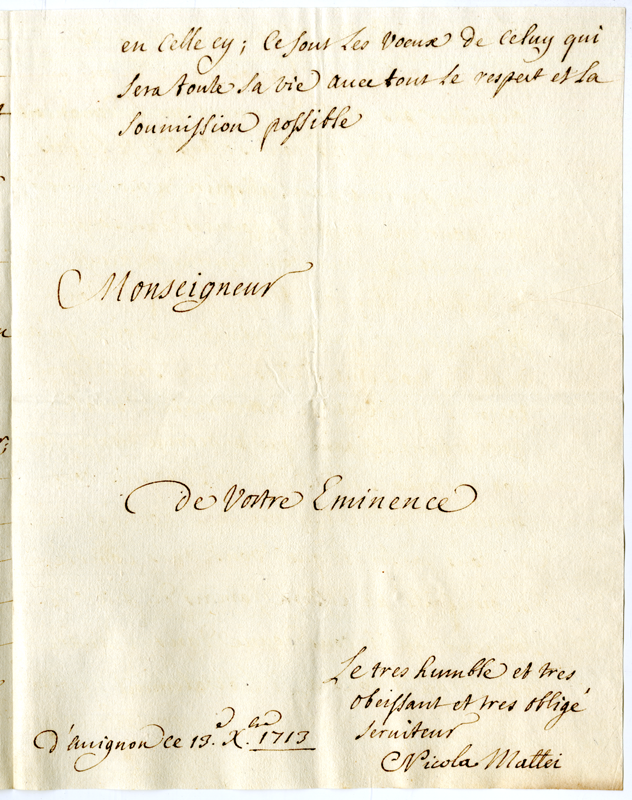 en Celle cy; Ce sont Les voeux de Celuy qui
sera toute sa vie avec tout Le respect et La
soumission possible
Monseigneur
de Vostre Eminence
Le tres humble et tres
obeissant et tres obligé
serviteur
d'Avignon ce 13.e X.bre 1713
Nicola Mattei